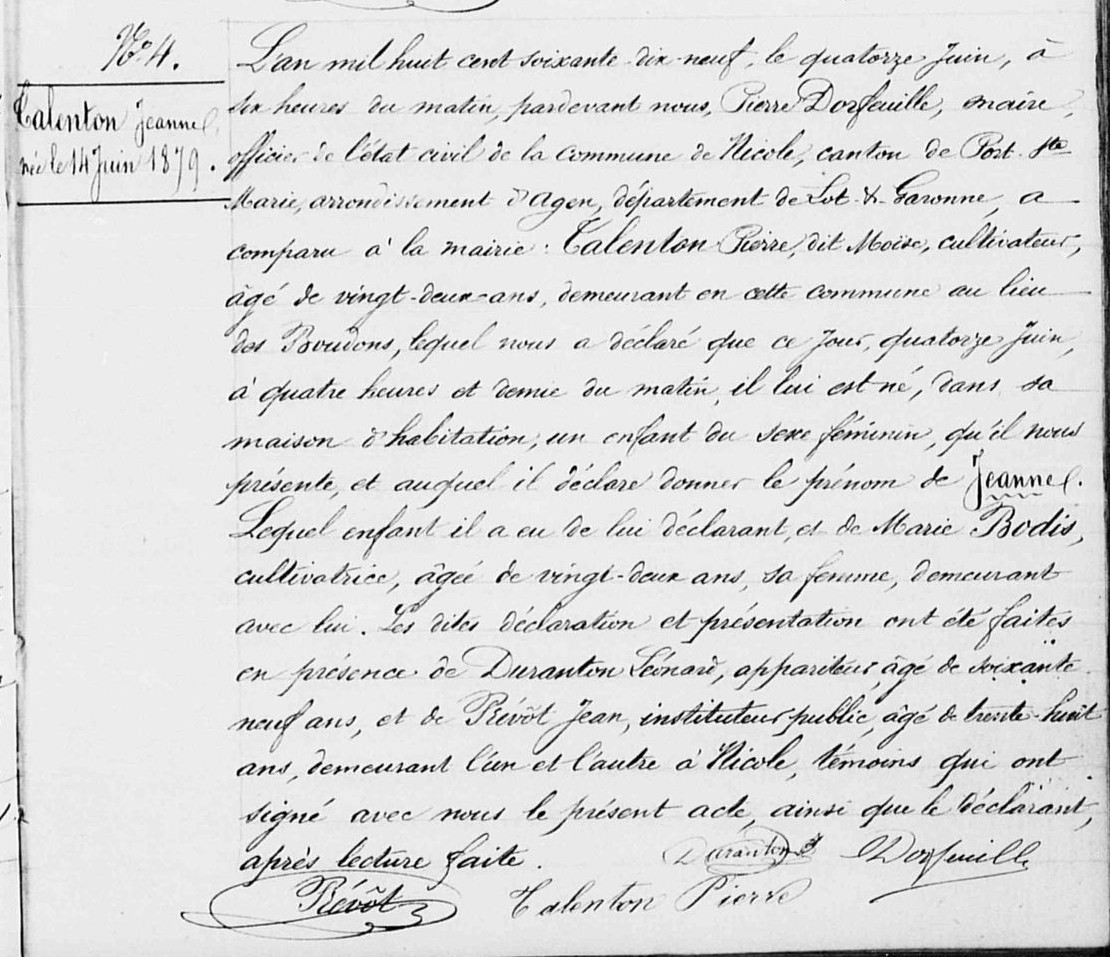 N° 4.
Talenton Jeanne
née le 14 Juin 1879.
L'an mil huit cent soixante-dix-neuf, le quatorze Juin, à
six heures du matin, pardevant nous, Pierre Dorfeuille, maire,
officier de l'état civil de la commune de Nicole, canton de Port-Ste
Marie, arrondissement d'Agen, département de Lot-&-Garonne, a
comparu à la mairie : Talenton Pierre, dit Moïse, cultivateur,
âgé de vingt-deux-ans, demeurant en cette commune au lieu
des Boudons, lequel nous a déclaré que ce jour, quatorze Juin,
à quatre heures et demie du matin, il lui est né, dans sa
maison d'habitation, un enfant du sexe féminin, qu'il nous
présente, et auquel il déclare donner le prénom de Jeanne.
Lequel enfant il a eu de lui déclarant, et de Marie Bodis,
cultivatrice, âgée de vingt-deux ans, sa femme, demeurant
avec lui. Les dites déclaration et présentation ont été faites
en présence de Duranton Léonard, appariteur, âgé de soixante
neuf ans, et de Prévôt Jean, instituteur public, âgé de trente-huit
ans, demeurant l'un et l'autre à Nicole, témoins qui ont
signé avec nous le présent acte, ainsi que le déclarant,
après lecture faite.
Duranton Dorfeuille
Prévôt Talenton Pierre